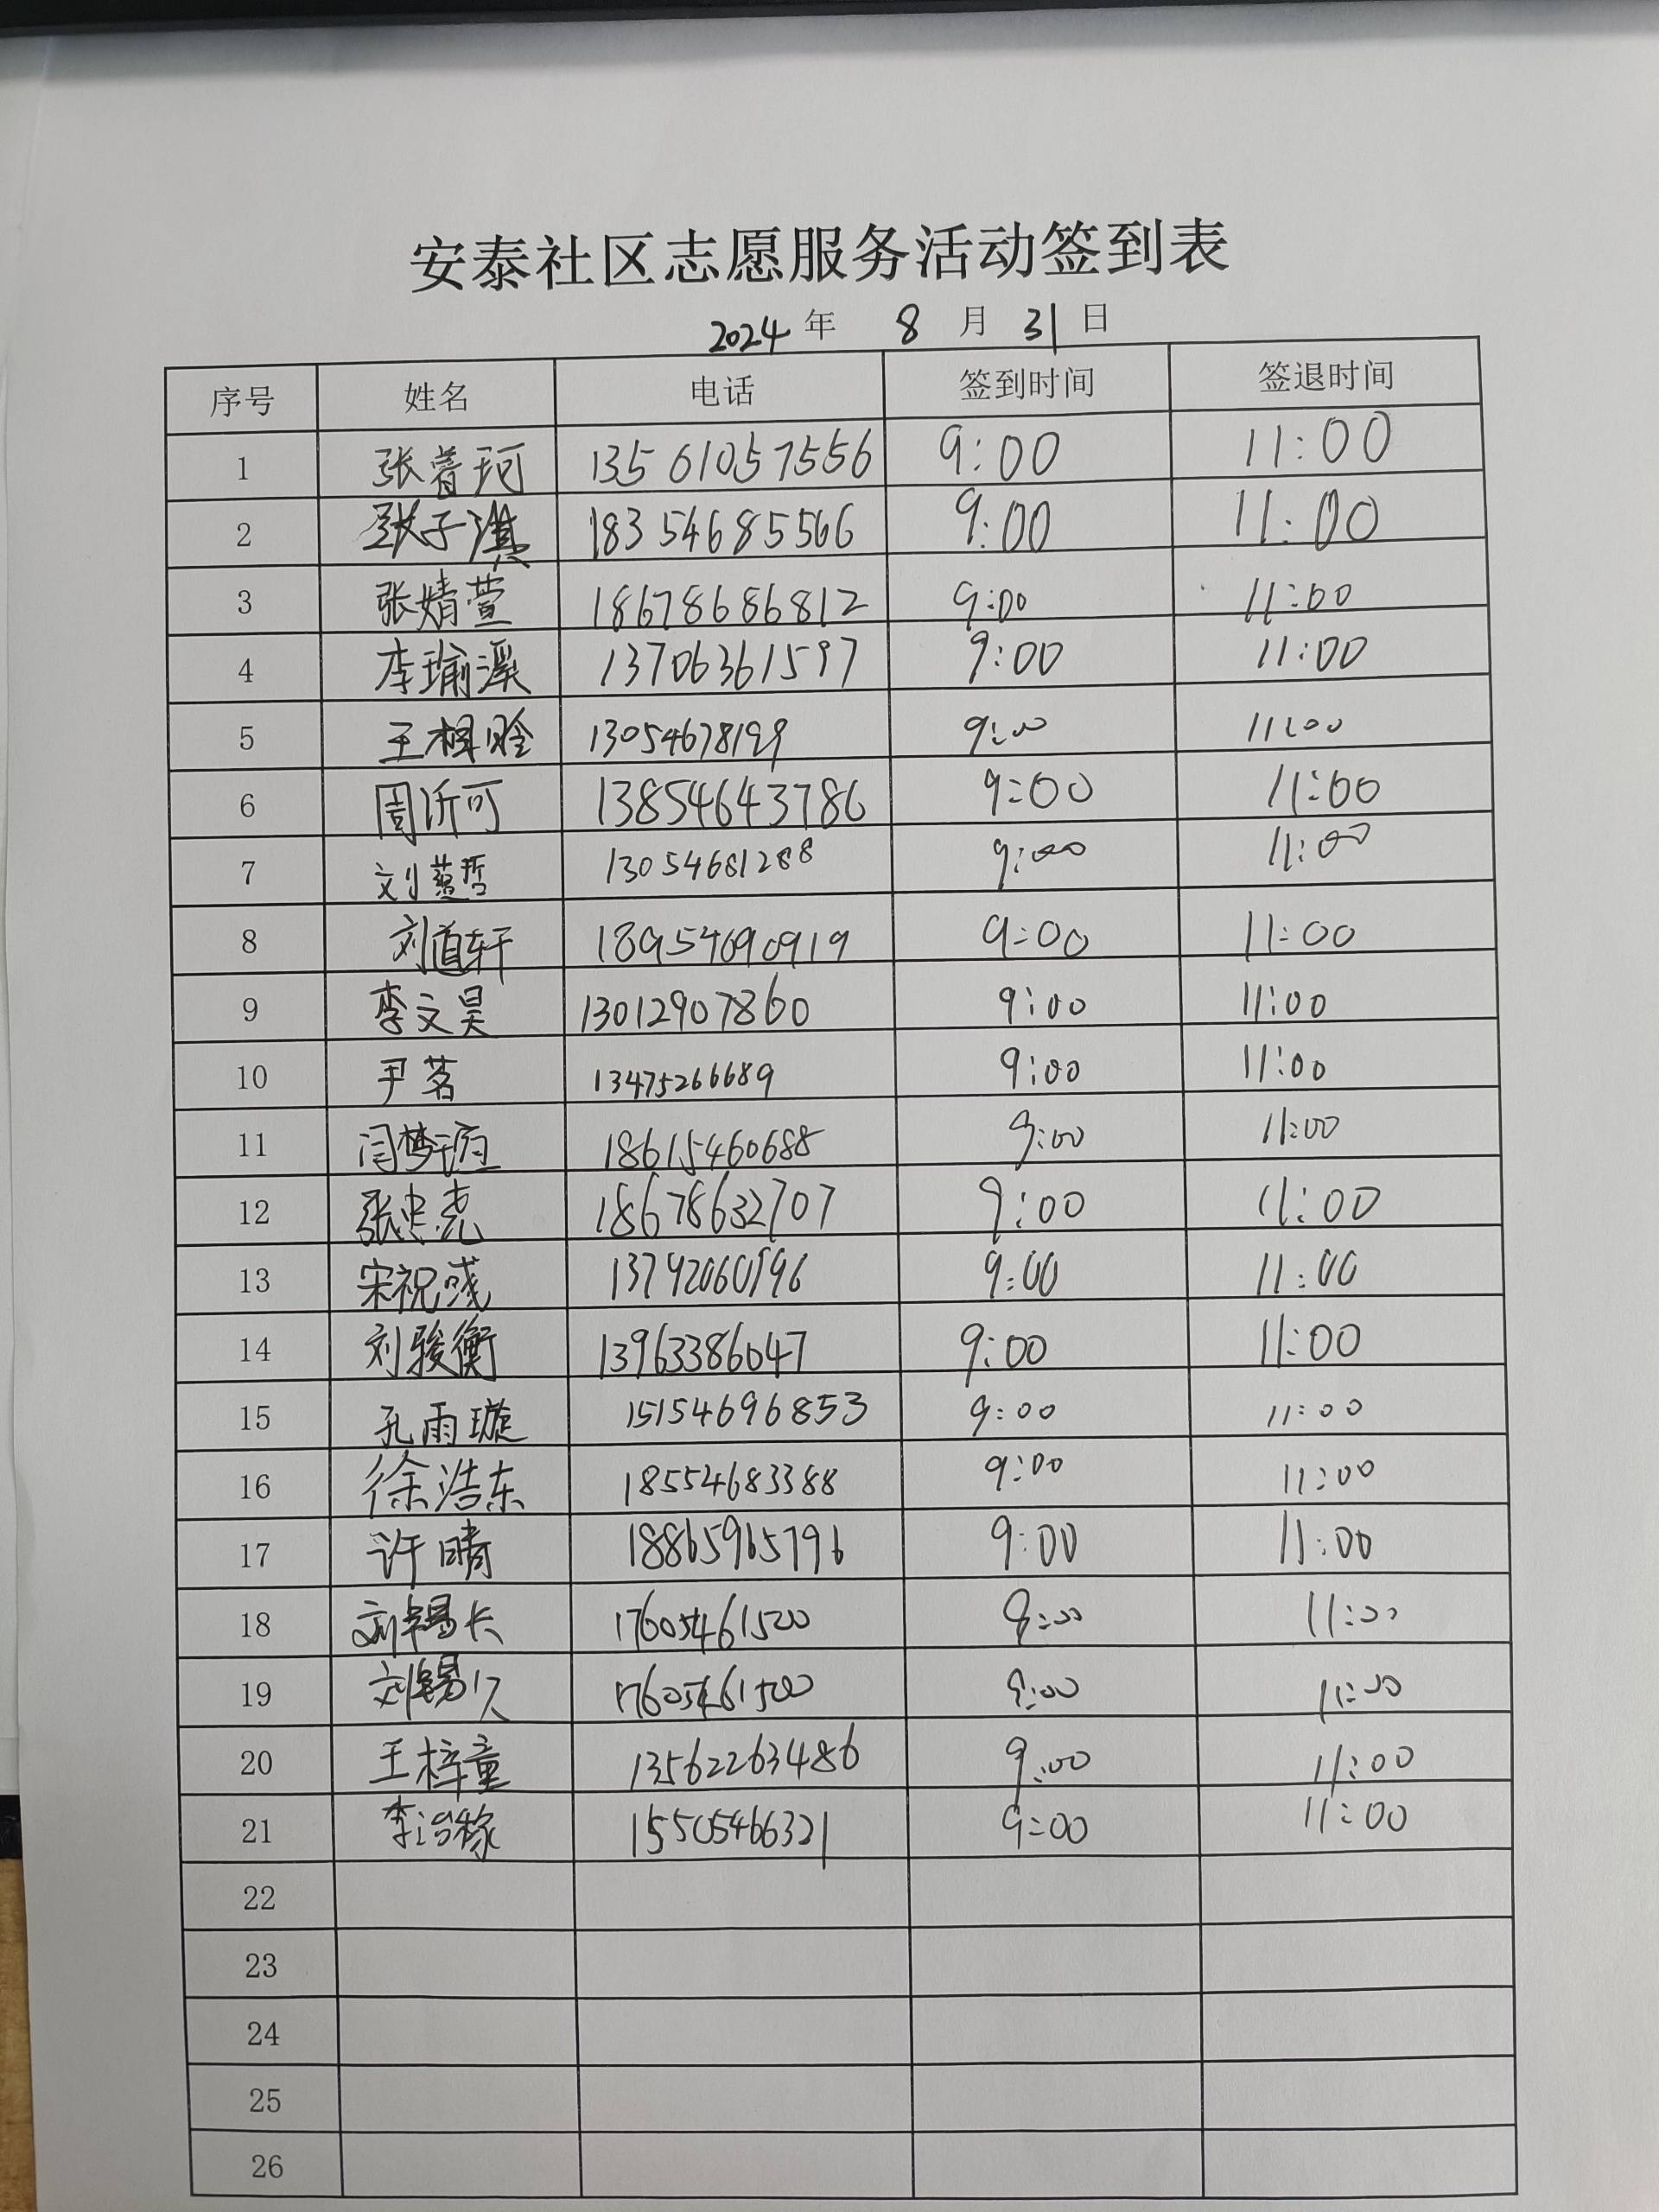 安泰社区志愿服务活动签到表
2024 年 8 月 31 日
序号 姓名 电话 签到时间 签退时间
1 张着珂 13561057556 9:00 11:00
2 张子淇 18354685566 9:00 11:00
3 张婧萱 18678686812 9:00 11:00
4 李瑜溪 13706361597 9:00 11:00
5 王相晗 13054678199 9:00 11:00
6 周沂可 13854643786 9:00 11:00
7 刘蕴哲 13054681288 9:00 11:00
8 刘道轩 18954690919 9:00 11:00
9 李文昊 13012907860 9:00 11:00
10 尹茗 13475266689 9:00 11:00
11 闫梦 18615460688 9:00 11:00
12 张忠尧 18678632707 9:00 11:00
13 宋祝 13792060996 9:00 11:00
14 刘骏衡 13963386047 9:00 11:00
15 孔雨璇 15154696853 9:00 11:00
16 徐浩东 18554683388 9:00 11:00
17 许晴 18865965796 9:00 11:00
18 刘锡长 17605461500 9:00 11:00
19 刘锡久 17605461500 9:00 11:00
20 王梓童 13562263486 9:00 11:00
21 李治稼 15505466321 9:00 11:00
22
23
24
25
26